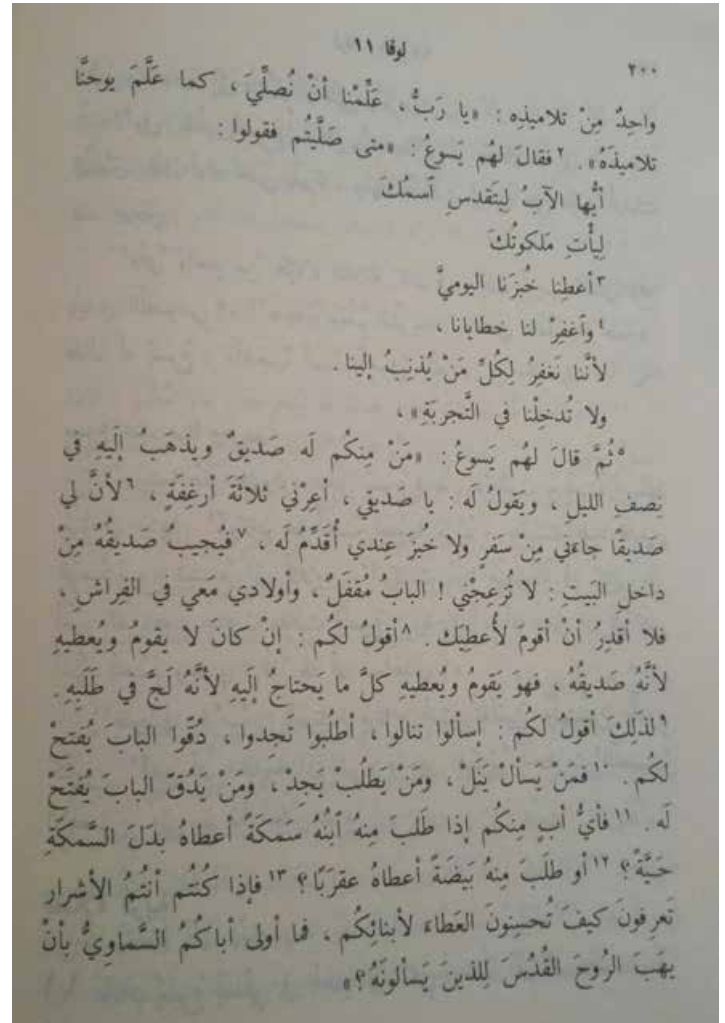 لوقا ١١
٢٠٠
واحِدٌ مِنْ تلاميذِه : «يا رَبُّ ، عَلِّمْنا أنْ نُصلِّيَ ، كما عَلَّمَ يوحنَّا
تلاميذَهُ». ٢ فقالَ لهُم يَسوعُ : «متى صَلَّيتُم فقولوا :
أيُّها الآبُ لِيَتَقدسِ ٱسمُكَ
لِيأْتِ مَلكوتُكَ
٣ أعطِنا خُبزَنا اليوميَّ
٤ وٱغفِرْ لنا خطايانا ،
لأنَّنا نَغفِرُ لِكُلِّ مَنْ يُذنِبُ إلينا .
ولا تُدخِلْنا في التَّجربَةِ» ،
٥ ثُمَّ قالَ لهُم يَسوعُ : «مَنْ مِنكُم لَه صَديقٌ ويذهَبُ إلَيهِ في
نِصفِ الليلِ ، ويَقولُ لَه : يا صَديقي ، أعِرْني ثلاثَةَ أرغِفَةٍ ، ٦ لأنَّ لي
صَديقًا جاءَني مِنْ سَفرٍ ولا خُبزَ عِندي أُقَدِّمُ لَه ، ٧ فيُجيبُ صَديقُهُ مِنْ
داخلِ البَيتِ : لا تُزعِجْني ! البابُ مُقفَلٌ ، وأولادي مَعي في الفِراشِ ،
فلا أقدِرُ أنْ أقومَ لأُعطِيَك. ٨ أقولُ لكُم : إنْ كانَ لا يقومُ ويُعطيهِ
لأنَّهُ صَديقُهُ ، فهوَ يَقومُ ويُعطيهِ كلَّ ما يَحتاجُ إلَيهِ لأنَّهُ لَجَّ في طَلَبِهِ .
٩ لذلِكَ أقولُ لكُم : إسألوا تنالوا ، أطلُبوا تَجِدوا ، دُقّوا البابَ يُفتَحْ
لكُم. ١٠ فمَنْ يَسألْ يَنَلْ ، ومَنْ يَطلُبْ يَجِدْ ، ومَنْ يَدُقّ البابَ يُفتَحْ
لَه. ١١ فأيُّ أبٍ مِنكُم إذا طَلبَ مِنهُ ٱبنُهُ سَمكَةً أعطاهُ بدَلَ السَّمكَةِ
حَيَّةً؟ ١٢ أو طلَبَ مِنهُ بَيضَةً أعطاهُ عقرَبًا؟ ١٣ فإذا كُنتُم أنتُمُ الأشرار
تَعرِفونَ كيفَ تُحسِنونَ العَطاءَ لأبنائِكُم ، فما أولى أباكُمُ السَّماوِيُّ بأنْ
يهَبَ الرُوحَ القُدُسَ لِلذينَ يَسألونَهُ؟»